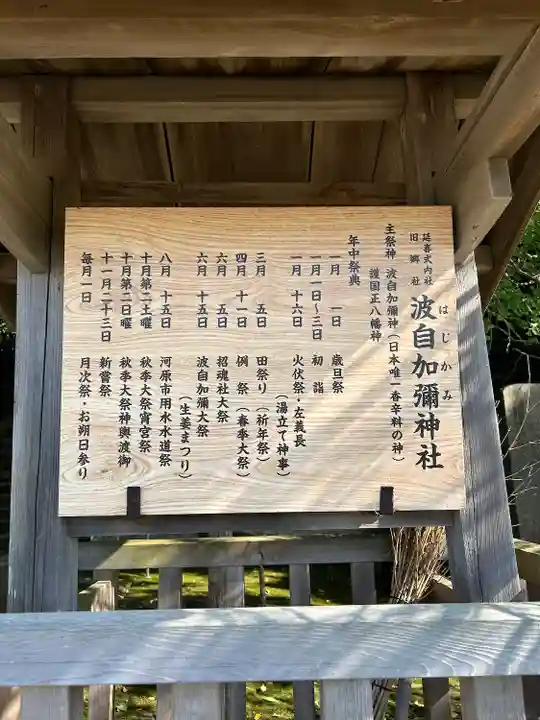 延喜式内社
旧郷社
波自加彌神社
はじかみ
主祭神 波自加彌神(日本唯一香辛料の神)
護国正八幡神
年中祭典
一月 一日 歳旦祭
一月一日〜三日 初詣
一月 十六日 火伏祭・左義長
(湯立て神事)
三月 五日 田祭り(祈年祭)
四月 十一日 例祭(春季大祭)
六月 五日 招魂社大祭
六月 十五日 波自加彌大祭
(生姜まつり)
八月 十五日 河原市用水水道祭
十月第二土曜 秋季大祭宵宮祭
十月第二日曜 秋季大祭神輿渡御
十一月二十三日 新嘗祭
毎月一日 月次祭・お朔日参り